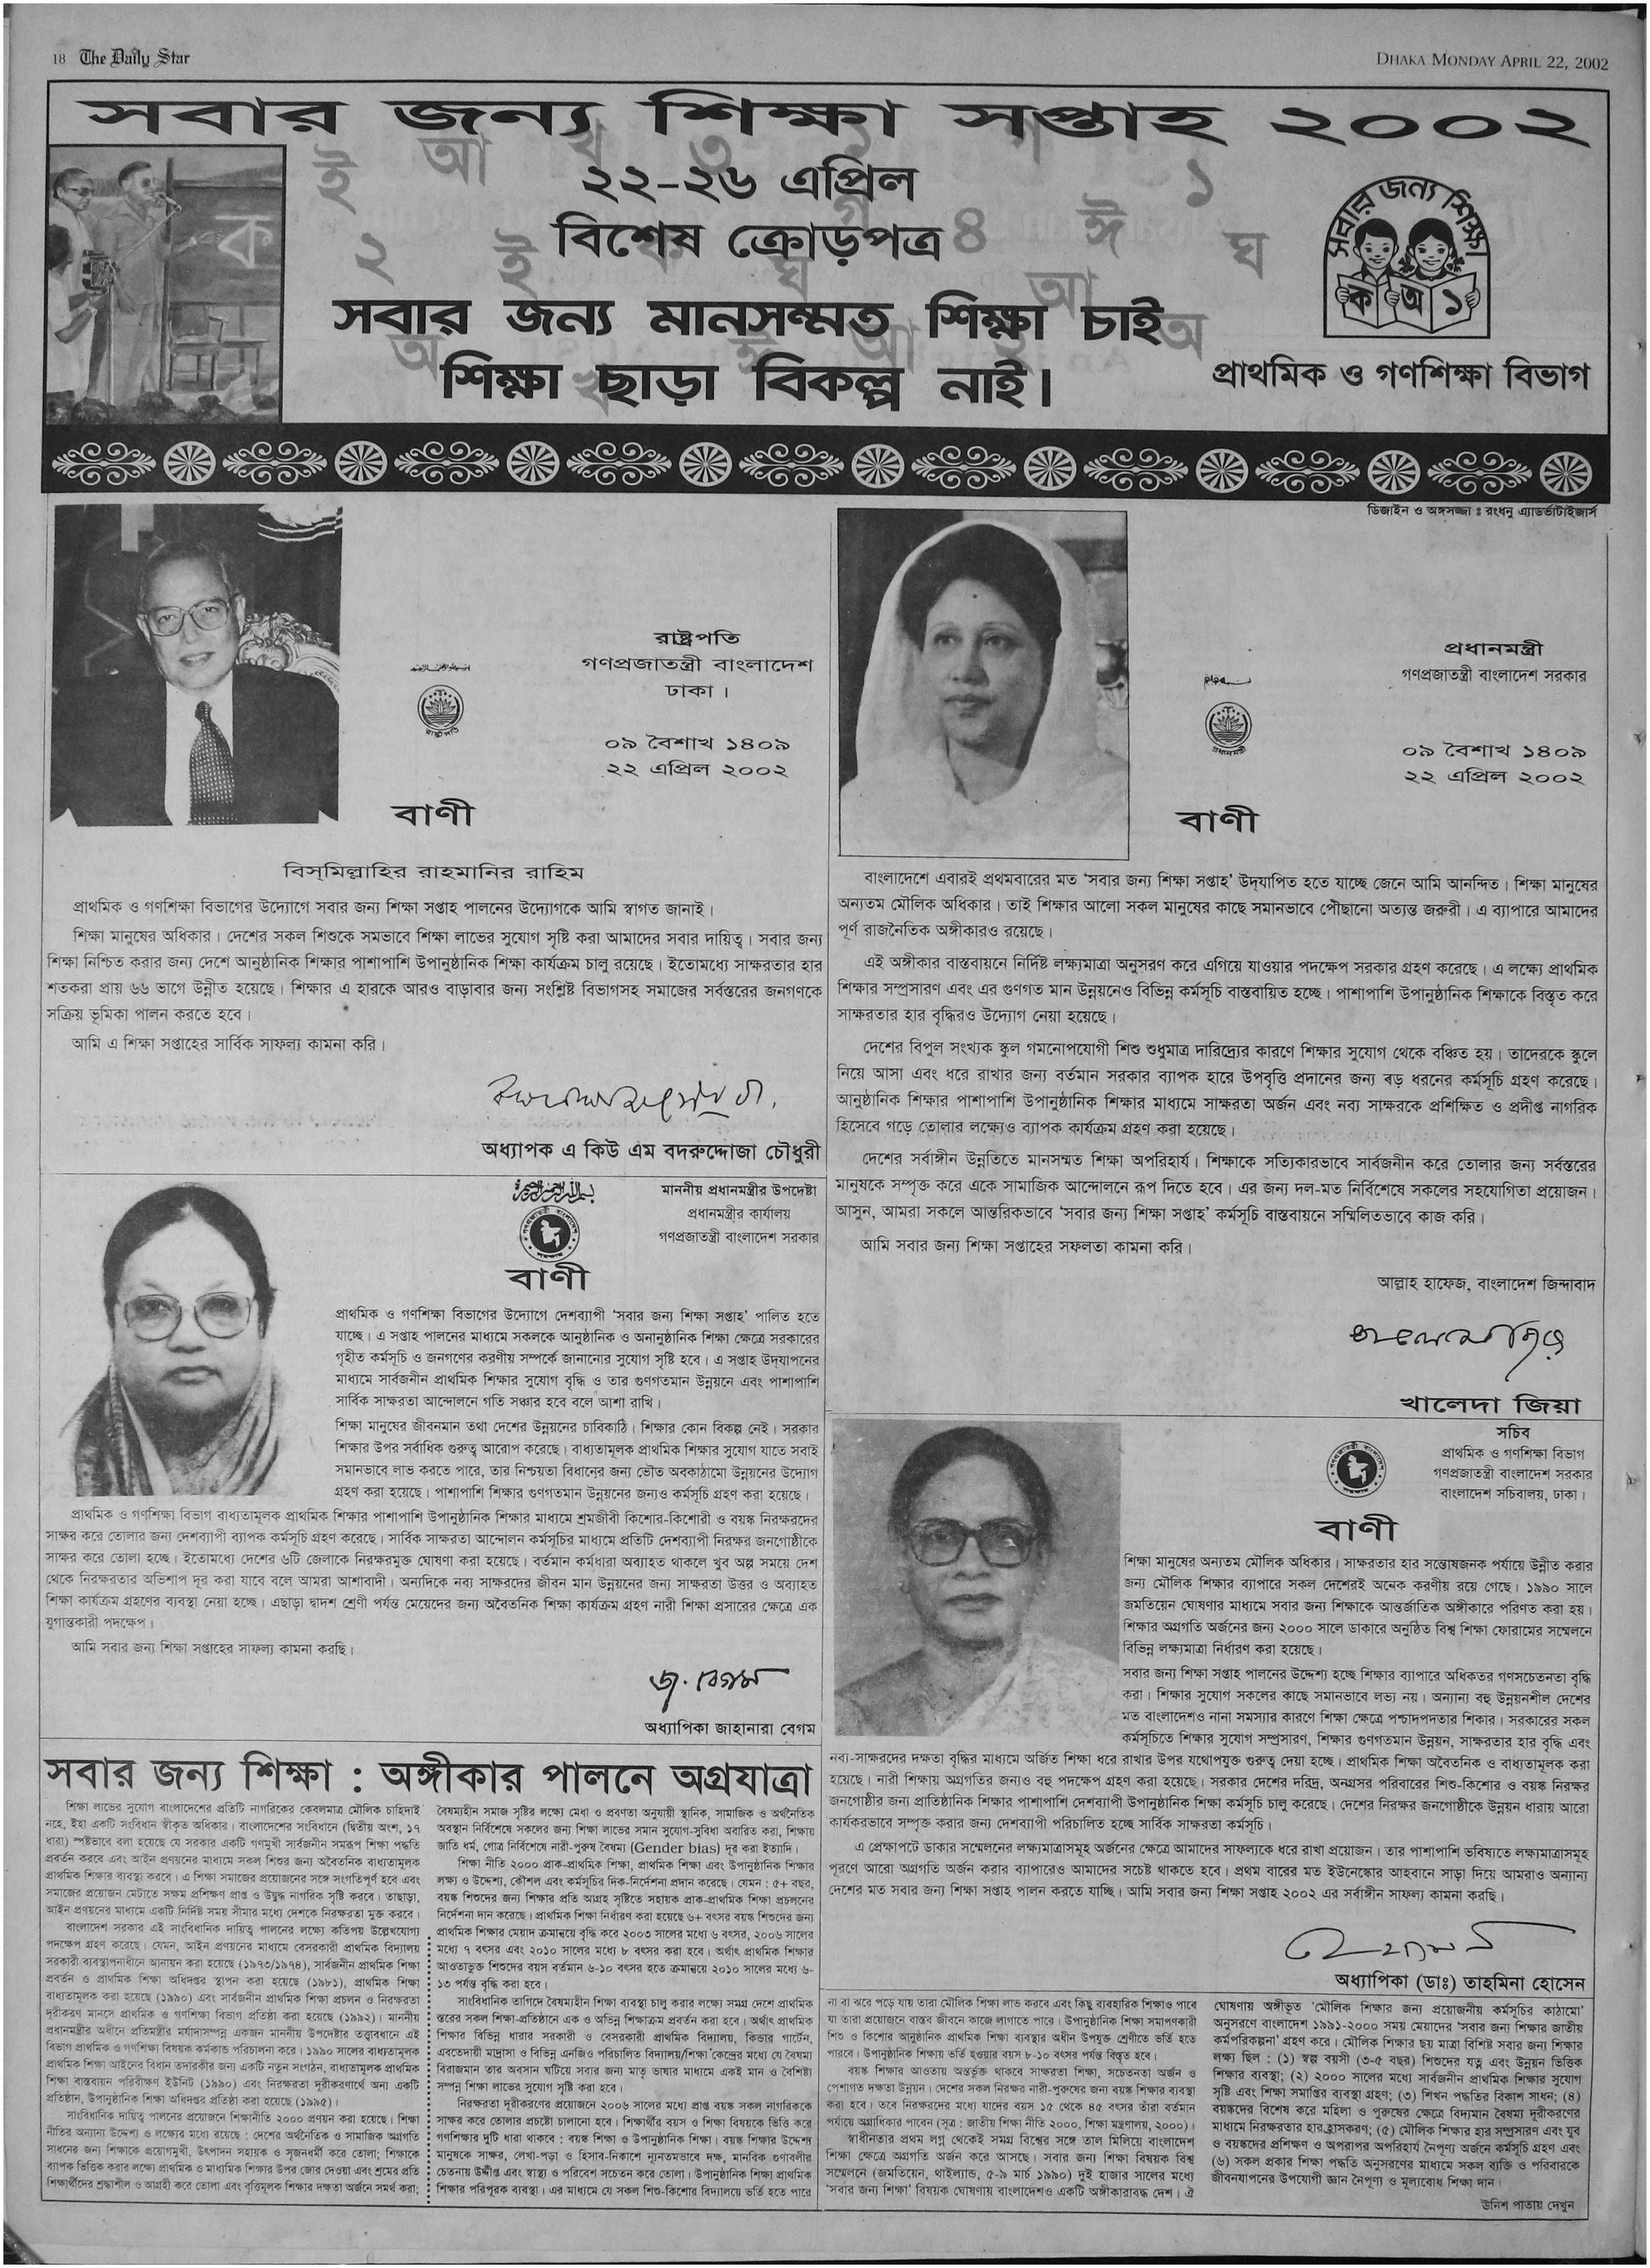 18 The Daily Star
DHAKA MONDAY APRIL 22, 2002
সবার জন্য শিক্ষা সপ্তাহ ২০০২
২২-২৬ এপ্রিল
বিশেষ ক্রোড়পত্র
সবার জন্য মানসম্মত শিক্ষা চাই
শিক্ষা ছাড়া বিকল্প নাই।
সবার জন্য শিক্ষা
ক অ ১
প্রাথমিক ও গণশিক্ষা বিভাগ
ডিজাইন ও অঙ্গসজ্জা ঃ রংধনু এ্যাডর্ভাটাইজার্স
রাষ্ট্রপতি
গণপ্রজাতন্ত্রী বাংলাদেশ
ঢাকা।
০৯ বৈশাখ ১৪০৯
২২ এপ্রিল ২০০২
বাণী
বিস্‌মিল্লাহির রাহমানির রাহিম
প্রাথমিক ও গণশিক্ষা বিভাগের উদ্যোগে সবার জন্য শিক্ষা সপ্তাহ পালনের উদ্যোগকে আমি স্বাগত জানাই।
শিক্ষা মানুষের অধিকার। দেশের সকল শিশুকে সমভাবে শিক্ষা লাভের সুযোগ সৃষ্টি করা আমাদের সবার দায়িত্ব। সবার জন্য
শিক্ষা নিশ্চিত করার জন্য দেশে আনুষ্ঠানিক শিক্ষার পাশাপাশি উপানুষ্ঠানিক শিক্ষা কার্যক্রম চালু রয়েছে। ইতোমধ্যে সাক্ষরতার হার
শতকরা প্রায় ৬৬ ভাগে উন্নীত হয়েছে। শিক্ষার এ হারকে আরও বাড়াবার জন্য সংশ্লিষ্ট বিভাগসহ সমাজের সর্বস্তরের জনগণকে
সক্রিয় ভূমিকা পালন করতে হবে।
আমি এ শিক্ষা সপ্তাহের সার্বিক সাফল্য কামনা করি।
অধ্যাপক এ কিউ এম বদরুদ্দোজা চৌধুরী
প্রধানমন্ত্রী
গণপ্রজাতন্ত্রী বাংলাদেশ সরকার
০৯ বৈশাখ ১৪০৯
২২ এপ্রিল ২০০২
বাণী
বাংলাদেশে এবারই প্রথমবারের মত ‘সবার জন্য শিক্ষা সপ্তাহ’ উদ্‌যাপিত হতে যাচ্ছে জেনে আমি আনন্দিত। শিক্ষা মানুষের
অন্যতম মৌলিক অধিকার। তাই শিক্ষার আলো সকল মানুষের কাছে সমানভাবে পৌঁছানো অত্যন্ত জরুরী। এ ব্যাপারে আমাদের
পূর্ণ রাজনৈতিক অঙ্গীকারও রয়েছে।
এই অঙ্গীকার বাস্তবায়নে নির্দিষ্ট লক্ষ্যমাত্রা অনুসরণ করে এগিয়ে যাওয়ার পদক্ষেপ সরকার গ্রহণ করেছে। এ লক্ষ্যে প্রাথমিক
শিক্ষার সম্প্রসারণ এবং এর গুণগত মান উন্নয়নেও বিভিন্ন কর্মসূচি বাস্তবায়িত হচ্ছে। পাশাপাশি উপানুষ্ঠানিক শিক্ষাকে বিস্তৃত করে
সাক্ষরতার হার বৃদ্ধিরও উদ্যোগ নেয়া হয়েছে।
দেশের বিপুল সংখ্যক স্কুল গমনোপযোগী শিশু শুধুমাত্র দারিদ্র্যের কারণে শিক্ষার সুযোগ থেকে বঞ্চিত হয়। তাদেরকে স্কুলে
নিয়ে আসা এবং ধরে রাখার জন্য বর্তমান সরকার ব্যাপক হারে উপবৃত্তি প্রদানের জন্য বড় ধরনের কর্মসূচি গ্রহণ করেছে।
আনুষ্ঠানিক শিক্ষার পাশাপাশি উপানুষ্ঠানিক শিক্ষার মাধ্যমে সাক্ষরতা অর্জন এবং নব্য সাক্ষরকে প্রশিক্ষিত ও প্রদীপ্ত নাগরিক
হিসেবে গড়ে তোলার লক্ষ্যেও ব্যাপক কার্যক্রম গ্রহণ করা হয়েছে।
দেশের সর্বাঙ্গীন উন্নতিতে মানসম্মত শিক্ষা অপরিহার্য। শিক্ষাকে সত্যিকারভাবে সার্বজনীন করে তোলার জন্য সর্বস্তরের
মানুষকে সম্পৃক্ত করে একে সামাজিক আন্দোলনে রূপ দিতে হবে। এর জন্য দল-মত নির্বিশেষে সকলের সহযোগিতা প্রয়োজন।
আসুন, আমরা সকলে আন্তরিকভাবে ‘সবার জন্য শিক্ষা সপ্তাহ’ কর্মসূচি বাস্তবায়নে সম্মিলিতভাবে কাজ করি।
আমি সবার জন্য শিক্ষা সপ্তাহের সফলতা কামনা করি।
আল্লাহ হাফেজ, বাংলাদেশ জিন্দাবাদ
খালেদা জিয়া
মাননীয় প্রধানমন্ত্রীর উপদেষ্টা
প্রধানমন্ত্রীর কার্যালয়
গণপ্রজাতন্ত্রী বাংলাদেশ সরকার
বাণী
প্রাথমিক ও গণশিক্ষা বিভাগের উদ্যোগে দেশব্যাপী ‘সবার জন্য শিক্ষা সপ্তাহ’ পালিত হতে
যাচ্ছে। এ সপ্তাহ পালনের মাধ্যমে সকলকে আনুষ্ঠানিক ও অনানুষ্ঠানিক শিক্ষা ক্ষেত্রে সরকারের
গৃহীত কর্মসূচি ও জনগণের করণীয় সম্পর্কে জানানোর সুযোগ সৃষ্টি হবে। এ সপ্তাহ উদ্‌যাপনের
মাধ্যমে সার্বজনীন প্রাথমিক শিক্ষার সুযোগ বৃদ্ধি ও তার গুণগতমান উন্নয়নে এবং পাশাপাশি
সার্বিক সাক্ষরতা আন্দোলনে গতি সঞ্চার হবে বলে আশা রাখি।
শিক্ষা মানুষের জীবনমান তথা দেশের উন্নয়নের চাবিকাঠি। শিক্ষার কোন বিকল্প নেই। সরকার
শিক্ষার উপর সর্বাধিক গুরুত্ব আরোপ করেছে। বাধ্যতামূলক প্রাথমিক শিক্ষার সুযোগ যাতে সবাই
সমানভাবে লাভ করতে পারে, তার নিশ্চয়তা বিধানের জন্য ভৌত অবকাঠামো উন্নয়নের উদ্যোগ
গ্রহণ করা হয়েছে। পাশাপাশি শিক্ষার গুণগতমান উন্নয়নের জন্যও কর্মসূচি গ্রহণ করা হয়েছে।
প্রাথমিক ও গণশিক্ষা বিভাগ বাধ্যতামূলক প্রাথমিক শিক্ষার পাশাপাশি উপানুষ্ঠানিক শিক্ষার মাধ্যমে শ্রমজীবী কিশোর-কিশোরী ও বয়স্ক নিরক্ষরদের
সাক্ষর করে তোলার জন্য দেশব্যাপী ব্যাপক কর্মসূচি গ্রহণ করেছে। সার্বিক সাক্ষরতা আন্দোলন কর্মসূচির মাধ্যমে প্রতিটি দেশব্যাপী নিরক্ষর জনগোষ্ঠীকে
সাক্ষর করে তোলা হচ্ছে। ইতোমধ্যে দেশের ৬টি জেলাকে নিরক্ষরমুক্ত ঘোষণা করা হয়েছে। বর্তমান কর্মধারা অব্যাহত থাকলে খুব অল্প সময়ে দেশ
থেকে নিরক্ষরতার অভিশাপ দূর করা যাবে বলে আমরা আশাবাদী। অন্যদিকে নব্য সাক্ষরদের জীবন মান উন্নয়নের জন্য সাক্ষরতা উত্তর ও অব্যাহত
শিক্ষা কার্যক্রম গ্রহণের ব্যবস্থা নেয়া হচ্ছে। এছাড়া দ্বাদশ শ্রেণী পর্যন্ত মেয়েদের জন্য অবৈতনিক শিক্ষা কার্যক্রম গ্রহণ নারী শিক্ষা প্রসারের ক্ষেত্রে এক
যুগান্তকারী পদক্ষেপ।
আমি সবার জন্য শিক্ষা সপ্তাহের সাফল্য কামনা করছি।
জা. বেগম
অধ্যাপিকা জাহানারা বেগম
সচিব
প্রাথমিক ও গণশিক্ষা বিভাগ
গণপ্রজাতন্ত্রী বাংলাদেশ সরকার
বাংলাদেশ সচিবালয়, ঢাকা।
বাণী
শিক্ষা মানুষের অন্যতম মৌলিক অধিকার। সাক্ষরতার হার সন্তোষজনক পর্যায়ে উন্নীত করার
জন্য মৌলিক শিক্ষার ব্যাপারে সকল দেশেরই অনেক করণীয় রয়ে গেছে। ১৯৯০ সালে
জমতিয়েন ঘোষণার মাধ্যমে সবার জন্য শিক্ষাকে আন্তর্জাতিক অঙ্গীকারে পরিণত করা হয়।
শিক্ষার অগ্রগতি অর্জনের জন্য ২০০০ সালে ডাকারে অনুষ্ঠিত বিশ্ব শিক্ষা ফোরামের সম্মেলনে
বিভিন্ন লক্ষ্যমাত্রা নির্ধারণ করা হয়েছে।
সবার জন্য শিক্ষা সপ্তাহ পালনের উদ্দেশ্য হচ্ছে শিক্ষার ব্যাপারে অধিকতর গণসচেতনতা বৃদ্ধি
করা। শিক্ষার সুযোগ সকলের কাছে সমানভাবে লভ্য নয়। অন্যান্য বহু উন্নয়নশীল দেশের
মত বাংলাদেশও নানা সমস্যার কারণে শিক্ষা ক্ষেত্রে পশ্চাদপদতার শিকার। সরকারের সকল
কর্মসূচিতে শিক্ষার সুযোগ সম্প্রসারণ, শিক্ষার গুণগতমান উন্নয়ন, সাক্ষরতার হার বৃদ্ধি এবং
নব্য-সাক্ষরদের দক্ষতা বৃদ্ধির মাধ্যমে অর্জিত শিক্ষা ধরে রাখার উপর যথোপযুক্ত গুরুত্ব দেয়া হচ্ছে। প্রাথমিক শিক্ষা অবৈতনিক ও বাধ্যতামূলক করা
হয়েছে। নারী শিক্ষায় অগ্রগতির জন্যও বহু পদক্ষেপ গ্রহণ করা হয়েছে। সরকার দেশের দরিদ্র, অনগ্রসর পরিবারের শিশু-কিশোর ও বয়স্ক নিরক্ষর
জনগোষ্ঠীর জন্য প্রাতিষ্ঠানিক শিক্ষার পাশাপাশি দেশব্যাপী উপানুষ্ঠানিক শিক্ষা কর্মসূচি চালু করেছে। দেশের নিরক্ষর জনগোষ্ঠীকে উন্নয়ন ধারায় আরো
কার্যকরভাবে সম্পৃক্ত করার জন্য দেশব্যাপী পরিচালিত হচ্ছে সার্বিক সাক্ষরতা কর্মসূচি।
এ প্রেক্ষাপটে ডাকার সম্মেলনের লক্ষ্যমাত্রাসমূহ অর্জনের ক্ষেত্রে আমাদের সাফল্যকে ধরে রাখা প্রয়োজন। তার পাশাপাশি ভবিষ্যতে লক্ষ্যমাত্রাসমূহ
পূরণে আরো অগ্রগতি অর্জন করার ব্যাপারেও আমাদের সচেষ্ট থাকতে হবে। প্রথম বারের মত ইউনেস্কোর আহবানে সাড়া দিয়ে আমরাও অন্যান্য
দেশের মত সবার জন্য শিক্ষা সপ্তাহ পালন করতে যাচ্ছি। আমি সবার জন্য শিক্ষা সপ্তাহ ২০০২ এর সর্বাঙ্গীন সাফল্য কামনা করছি।
অধ্যাপিকা (ডাঃ) তাহমিনা হোসেন
সবার জন্য শিক্ষা : অঙ্গীকার পালনে অগ্রযাত্রা
শিক্ষা লাভের সুযোগ বাংলাদেশের প্রতিটি নাগরিকের কেবলমাত্র মৌলিক চাহিদাই
নহে, ইহা একটি সংবিধান স্বীকৃত অধিকার। বাংলাদেশের সংবিধানে (দ্বিতীয় অংশ, ১৭
ধারা) স্পষ্টভাবে বলা হয়েছে যে সরকার একটি গণমুখী সার্বজনীন সমরূপ শিক্ষা পদ্ধতি
প্রবর্তন করবে এবং আইন প্রণয়নের মাধ্যমে সকল শিশুর জন্য অবৈতনিক বাধ্যতামূলক
প্রাথমিক শিক্ষার ব্যবস্থা করবে। এ শিক্ষা সমাজের প্রয়োজনের সঙ্গে সংগতিপূর্ণ হবে এবং
সমাজের প্রয়োজন মেটাতে সক্ষম প্রশিক্ষণ প্রাপ্ত ও উদ্বুদ্ধ নাগরিক সৃষ্টি করবে। তাছাড়া,
আইন প্রণয়নের মাধ্যমে একটি নির্দিষ্ট সময় সীমার মধ্যে দেশকে নিরক্ষরতা মুক্ত করবে।
বাংলাদেশ সরকার এই সাংবিধানিক দায়িত্ব পালনের লক্ষ্যে কতিপয় উল্লেখযোগ্য
পদক্ষেপ গ্রহণ করেছে। যেমন, আইন প্রণয়নের মাধ্যমে বেসরকারী প্রাথমিক বিদ্যালয়
সরকারী ব্যবস্থাপনাধীনে আনায়ন করা হয়েছে (১৯৭৩/১৯৭৪), সার্বজনীন প্রাথমিক শিক্ষা
প্রবর্তন ও প্রাথমিক শিক্ষা অধিদপ্তর স্থাপন করা হয়েছে (১৯৮১), প্রাথমিক শিক্ষা
বাধ্যতামূলক করা হয়েছে (১৯৯০) এবং সার্বজনীন প্রাথমিক শিক্ষা প্রচলন ও নিরক্ষরতা
দূরীকরণ মানসে প্রাথমিক ও গণশিক্ষা বিভাগ প্রতিষ্ঠা করা হয়েছে (১৯৯২)। মাননীয়
প্রধানমন্ত্রীর অধীনে প্রতিমন্ত্রীর মর্যাদাসম্পন্ন একজন মাননীয় উপদেষ্টার তত্ত্বাবধানে এই
বিভাগ প্রাথমিক ও গণশিক্ষা বিষয়ক কর্মকান্ড পরিচালনা করে। ১৯৯০ সালের বাধ্যতামূলক
প্রাথমিক শিক্ষা আইনের বিধান তদারকীর জন্য একটি নতুন সংগঠন, বাধ্যতামূলক প্রাথমিক
শিক্ষা বাস্তবায়ন পরিবীক্ষণ ইউনিট (১৯৯০) এবং নিরক্ষরতা দূরীকরণার্থে অন্য একটি
প্রতিষ্ঠান, উপানুষ্ঠানিক শিক্ষা অধিদপ্তর প্রতিষ্ঠা করা হয়েছে (১৯৯৫)।
সাংবিধানিক দায়িত্ব পালনের প্রয়োজনে শিক্ষানীতি ২০০০ প্রণয়ন করা হয়েছে। শিক্ষা
নীতির অন্যান্য উদ্দেশ্য ও লক্ষ্যের মধ্যে রয়েছে : দেশের অর্থনৈতিক ও সামাজিক অগ্রগতি
সাধনের জন্য শিক্ষাকে প্রয়োগমুখী, উৎপাদন সহায়ক ও সৃজনধর্মী করে তোলা; শিক্ষাকে
ব্যাপক ভিত্তিক করার লক্ষ্যে প্রাথমিক ও মাধ্যমিক শিক্ষার উপর জোর দেওয়া এবং শ্রমের প্রতি
শিক্ষার্থীদের শ্রদ্ধাশীল ও আগ্রহী করে তোলা এবং বৃত্তিমূলক শিক্ষার দক্ষতা অর্জনে সমর্থ করা;
বৈষম্যহীন সমাজ সৃষ্টির লক্ষ্যে মেধা ও প্রবণতা অনুযায়ী স্থানিক, সামাজিক ও অর্থনৈতিক
অবস্থান নির্বিশেষে সকলের জন্য শিক্ষা লাভের সমান সুযোগ-সুবিধা অবারিত করা, শিক্ষায়
জাতি ধর্ম, গোত্র নির্বিশেষে নারী-পুরুষ বৈষম্য (Gender bias) দূর করা ইত্যাদি।
শিক্ষা নীতি ২০০০ প্রাক-প্রাথমিক শিক্ষা, প্রাথমিক শিক্ষা এবং উপানুষ্ঠানিক শিক্ষার
লক্ষ্য ও উদ্দেশ্য, কৌশল এবং কর্মসূচির দিক-নির্দেশনা প্রদান করেছে। যেমন : ৫+ বছর,
বয়স্ক শিশুদের জন্য শিক্ষার প্রতি আগ্রহ সৃষ্টিতে সহায়ক প্রাক-প্রাথমিক শিক্ষা প্রচলনের
নির্দেশনা দান করেছে। প্রাথমিক শিক্ষা নির্ধারণ করা হয়েছে ৬+ বৎসর বয়স্ক শিশুদের জন্য
প্রাথমিক শিক্ষার মেয়াদ ক্রমান্বয়ে বৃদ্ধি করে ২০০৩ সালের মধ্যে ৬ বৎসর, ২০০৬ সালের
মধ্যে ৭ বৎসর এবং ২০১০ সালের মধ্যে ৮ বৎসর করা হবে। অর্থাৎ প্রাথমিক শিক্ষার
আওতাভুক্ত শিশুদের বয়স বর্তমান ৬-১০ বৎসর হতে ক্রমান্বয়ে ২০১০ সালের মধ্যে ৬-
১৩ পর্যন্ত বৃদ্ধি করা হবে।
সাংবিধানিক তাগিদে বৈষম্যহীন শিক্ষা ব্যবস্থা চালু করার লক্ষ্যে সমগ্র দেশে প্রাথমিক
স্তরের সকল শিক্ষা-প্রতিষ্ঠানে এক ও অভিন্ন শিক্ষাক্রম প্রবর্তন করা হবে। অর্থাৎ প্রাথমিক
শিক্ষার বিভিন্ন ধারার সরকারী ও বেসরকারী প্রাথমিক বিদ্যালয়, কিন্ডার গার্টেন,
এবতেদায়ী মাদ্রাসা ও বিভিন্ন এনজিও পরিচালিত বিদ্যালয়/শিক্ষা কেন্দ্রের মধ্যে যে বৈষম্য
বিরাজমান তার অবসান ঘটিয়ে সবার জন্য মাতৃ ভাষার মাধ্যমে একই মান ও বৈশিষ্ট্য
সম্পন্ন শিক্ষা লাভের সুযোগ সৃষ্টি করা হবে।
নিরক্ষরতা দূরীকরণের প্রয়োজনে ২০০৬ সালের মধ্যে প্রাপ্ত বয়স্ক সকল নাগরিককে
সাক্ষর করে তোলার প্রচেষ্টা চালানো হবে। শিক্ষার্থীর বয়স ও শিক্ষা বিষয়কে ভিত্তি করে
গণশিক্ষার দুটি ধারা থাকবে : বয়স্ক শিক্ষা ও উপানুষ্ঠানিক শিক্ষা। বয়স্ক শিক্ষার উদ্দেশ্য
মানুষকে সাক্ষর, লেখা-পড়া ও হিসাব-নিকাশে ন্যূনতমভাবে দক্ষ, মানবিক গুণাবলীর
চেতনায় উদ্দীপ্ত এবং স্বাস্থ্য ও পরিবেশ সচেতন করে তোলা। উপানুষ্ঠানিক শিক্ষা প্রাথমিক
শিক্ষার পরিপূরক ব্যবস্থা। এর মাধ্যমে যে সকল শিশু-কিশোর বিদ্যালয়ে ভর্তি হতে পারে
না বা ঝরে পড়ে যায় তারা মৌলিক শিক্ষা লাভ করবে এবং কিছু ব্যবহারিক শিক্ষাও পাবে
যা তারা প্রয়োজনে বাস্তব জীবনে কাজে লাগাতে পারে। উপানুষ্ঠানিক শিক্ষা সমাপণকারী
শিশু ও কিশোর আনুষ্ঠানিক প্রাথমিক শিক্ষা ব্যবস্থার অধীন উপযুক্ত শ্রেণীতে ভর্তি হতে
পারবে। উপানুষ্ঠানিক শিক্ষায় ভর্তি হওয়ার বয়স ৮-১০ বৎসর পর্যন্ত বিস্তৃত হবে।
বয়স্ক শিক্ষার আওতায় অন্তর্ভুক্ত থাকবে সাক্ষরতা শিক্ষা, সচেতনতা অর্জন ও
পেশাগত দক্ষতা উন্নয়ন। দেশের সকল নিরক্ষর নারী-পুরুষের জন্য বয়স্ক শিক্ষার ব্যবস্থা
করা হবে। তবে নিরক্ষরদের মধ্যে যাদের বয়স ১৫ থেকে ৪৫ বৎসর তাঁরা বর্তমান
পর্যায়ে অগ্রাধিকার পাবেন (সূত্র : জাতীয় শিক্ষা নীতি ২০০০, শিক্ষা মন্ত্রণালয়, ২০০০)।
স্বাধীনতার প্রথম লগ্ন থেকেই সমগ্র বিশ্বের সঙ্গে তাল মিলিয়ে বাংলাদেশ
শিক্ষা ক্ষেত্রে অগ্রগতি অর্জন করে আসছে। সবার জন্য শিক্ষা বিষয়ক বিশ্ব
সম্মেলনে (জমতিয়েন, থাইল্যান্ড, ৫-৯ মার্চ ১৯৯০) দুই হাজার সালের মধ্যে
‘সবার জন্য শিক্ষা’ বিষয়ক ঘোষণায় বাংলাদেশও একটি অঙ্গীকারাবদ্ধ দেশ। ঐ
ঘোষণায় অঙ্গীভূত ‘মৌলিক শিক্ষার জন্য প্রয়োজনীয় কর্মসূচির কাঠামো’
অনুসরণে বাংলাদেশ ১৯৯১-২০০০ সময় মেয়াদের ‘সবার জন্য শিক্ষার জাতীয়
কর্মপরিকল্পনা’ গ্রহণ করে। মৌলিক শিক্ষার ছয় মাত্রা বিশিষ্ট সবার জন্য শিক্ষার
লক্ষ্য ছিল : (১) স্বল্প বয়সী (৩-৫ বছর) শিশুদের যত্ন এবং উন্নয়ন ভিত্তিক
শিক্ষার ব্যবস্থা; (২) ২০০০ সালের মধ্যে সার্বজনীন প্রাথমিক শিক্ষার সুযোগ
সৃষ্টি এবং শিক্ষা সমাপ্তির ব্যবস্থা গ্রহণ; (৩) শিখন পদ্ধতির বিকাশ সাধন; (৪)
বয়স্কদের বিশেষ করে মহিলা ও পুরুষের ক্ষেত্রে বিদ্যমান বৈষম্য দূরীকরণের
মাধ্যমে নিরক্ষরতার হার হ্রাসকরণ; (৫) মৌলিক শিক্ষার হার সম্প্রসারণ এবং যুব
ও বয়স্কদের প্রশিক্ষণ ও অপরাপর অপরিহার্য নৈপুণ্য অর্জনে কর্মসূচি গ্রহণ এবং
(৬) সকল প্রকার শিক্ষা পদ্ধতি অনুসরণের মাধ্যমে সকল ব্যক্তি ও পরিবারকে
জীবনযাপনের উপযোগী জ্ঞান নৈপুণ্য ও মূল্যবোধ শিক্ষা দান।
উনিশ পাতায় দেখুন